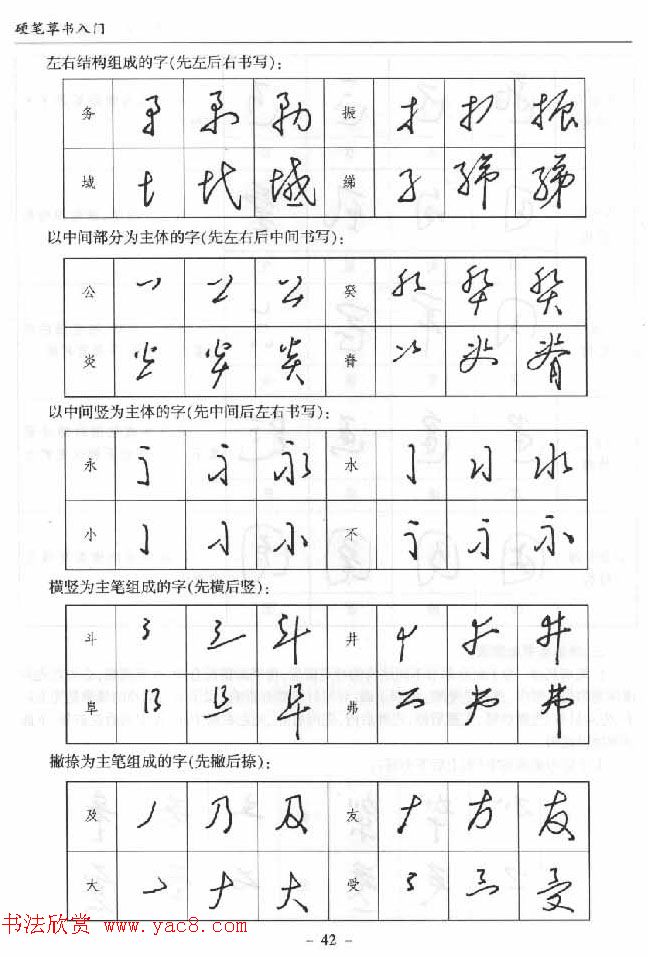 硬笔草书入门
左右结构组成的字(先左后右书写):
务 振
域 绨
以中间部分为主体的字(先左右后中间书写):
公 癸
炎 脊
以中间竖为主体的字(先中间后左右书写):
永 水
小 不
横竖为主笔组成的字(先横后竖):
斗 井
阜 弗
撇捺为主笔组成的字(先撇后捺):
及 友
大 受
书法欣赏 www.yac8.com
- 42 -